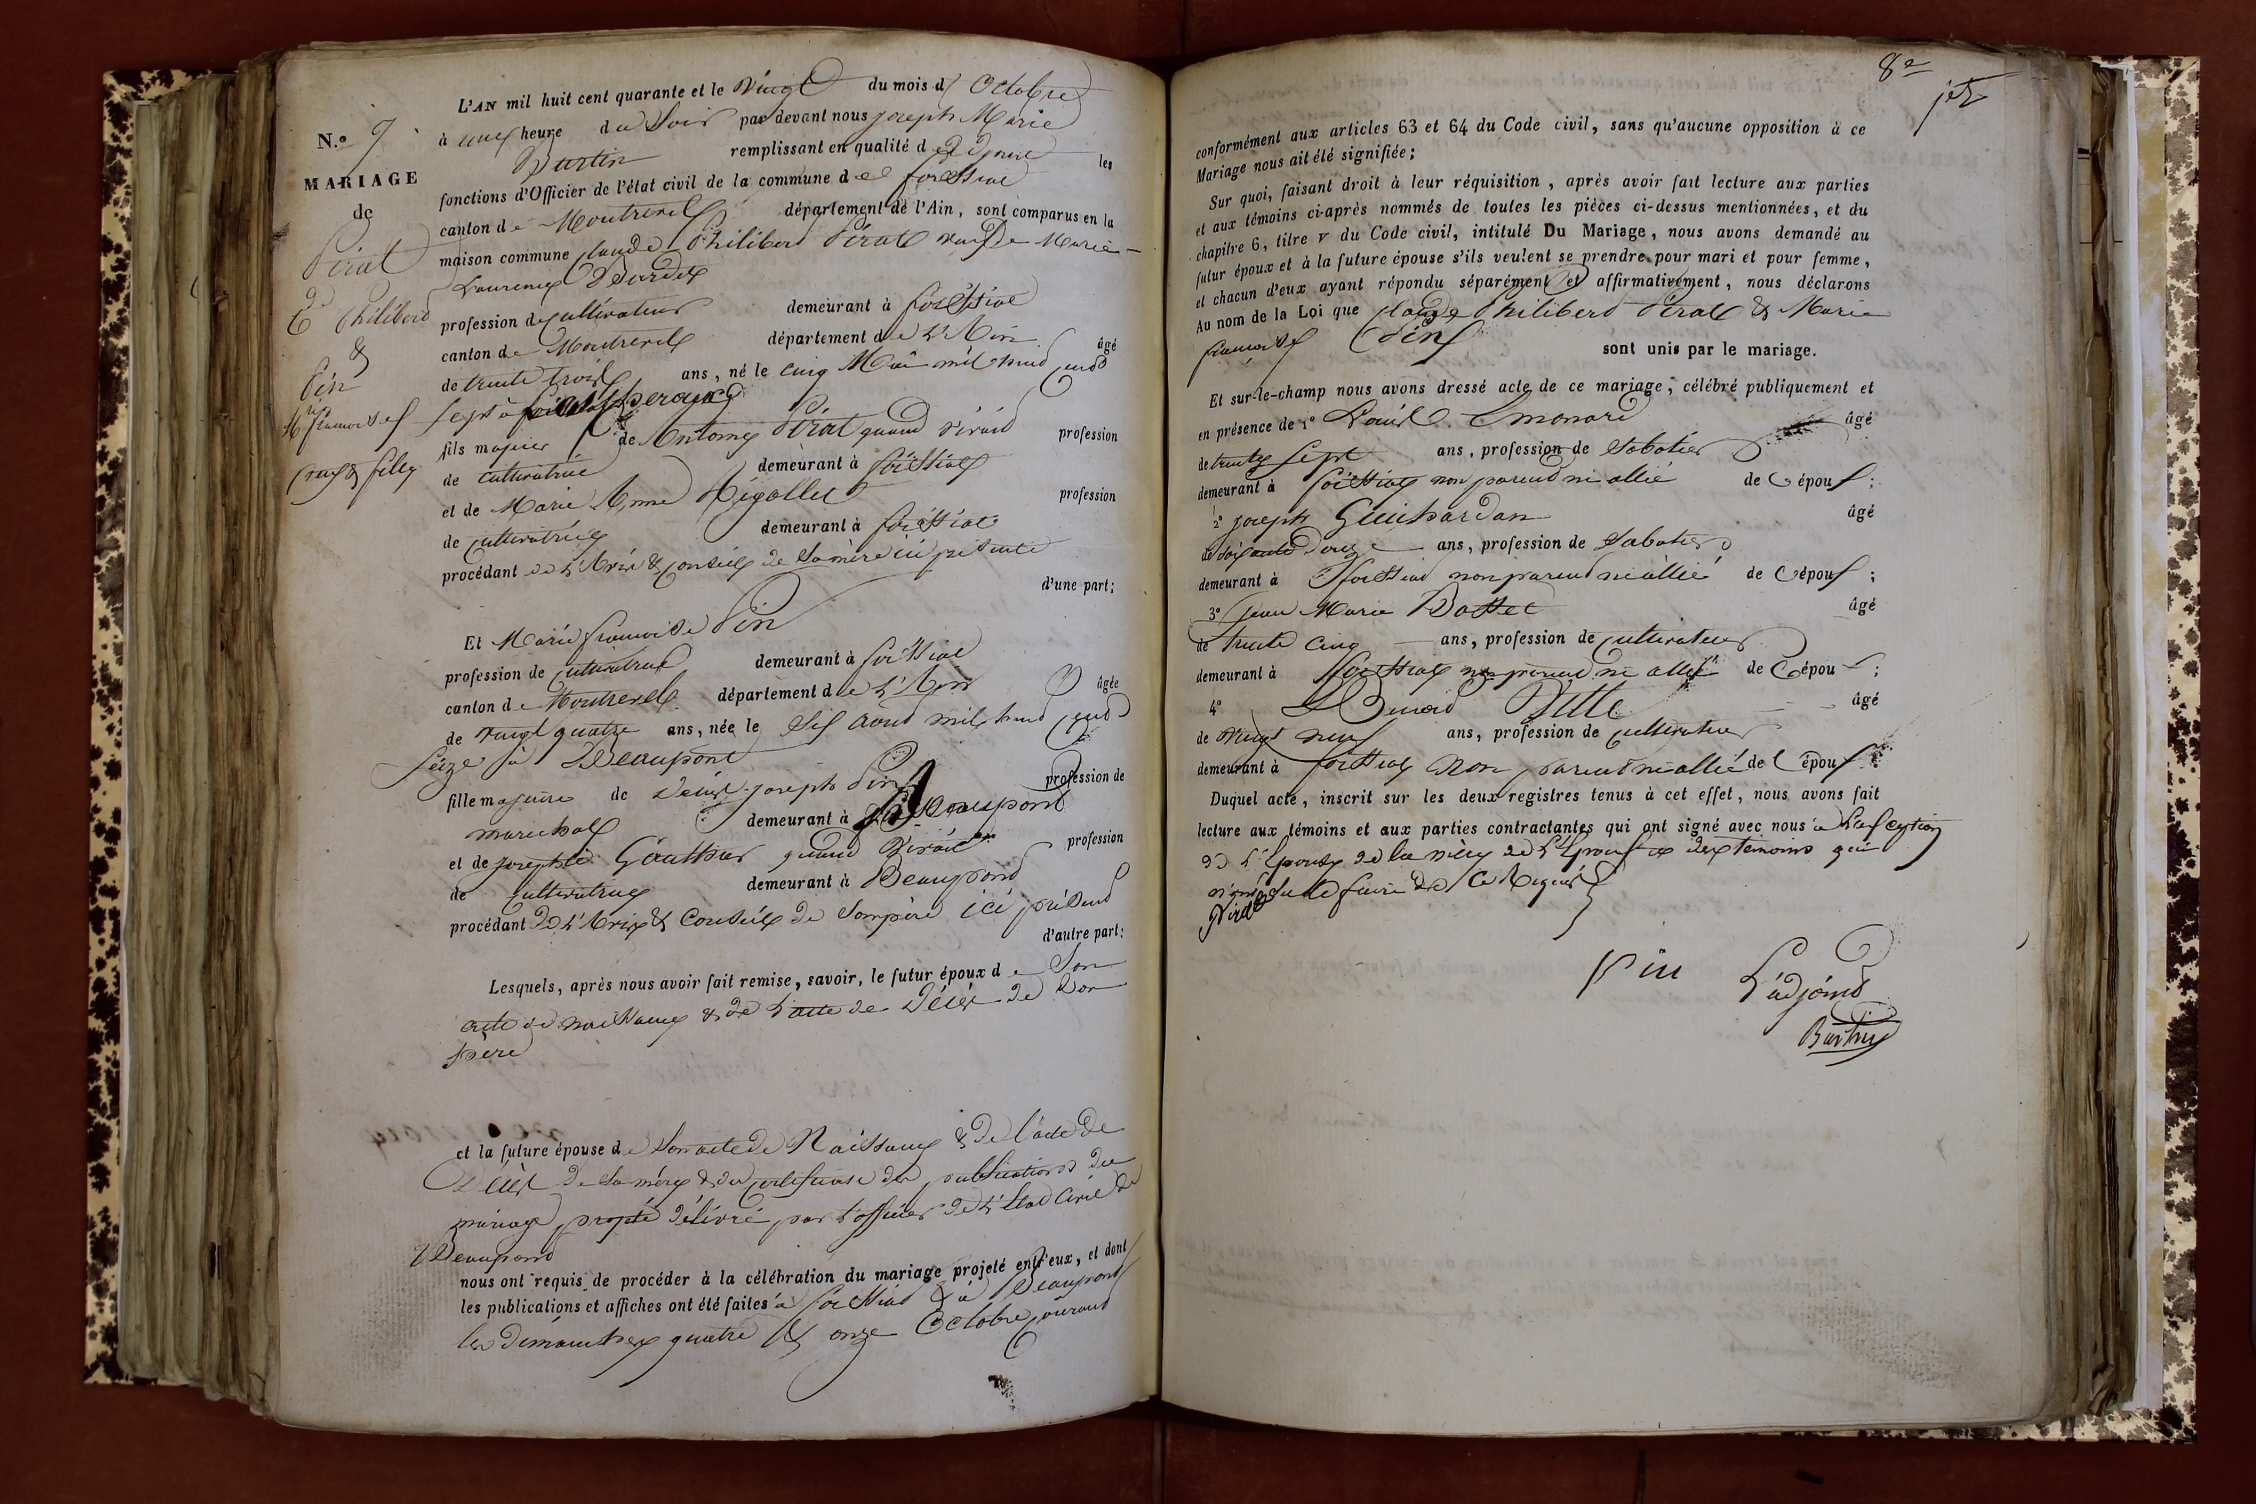 N.º 7
MARIAGE
de
Pirat
Cde Philibert
&
Pin
Mie francoise
veuf & fille
L'AN mil huit cent quarante et le vingt du mois d' Octobre
à une heure du Soir par devant nous joseph Marie
Burtin remplissant en qualité d'adjoint les
fonctions d'Officier de l'état civil de la commune de foissiat
canton de Montrevel département de l'Ain, sont comparus en la
maison commune claude Philibert Pirat veuf de Marie
Laurence
profession de cultivateur demeurant à foissiat
canton de Montrevel département de L'Ain âgé
de trente trois ans, né le cinq Mai mil huit cent
sept à
fils majeur de Antoine Pirat quand vivait profession
de cultivateur demeurant à foissiat
et de Marie Anne profession
de cultivatrice demeurant à foissiat
procédant de L'Avis & conseil de Samère ici présente
d'une part;
Et Marie francoise Pin
profession de cultivatrice demeurant à foissiat
canton de Montrevel département de L'Ain âgée
de vingt quatre ans, née le Six aout mil huit cent
Seize à Beaupont
fille majeure de Denis joseph Pin profession de
marechal demeurant à Beaupont
et de josephte Gauthier quand vivait profession
de cultivatrice demeurant à Beaupont
procédant de L'Avis & Conseil de Sonpère ici présent
d'autre part:
Lesquels, après nous avoir fait remise, savoir, le futur époux de Son
acte de naissance & de L'acte de Décès de Son
père
et la future épouse de Son acte de Naissance & de l'acte de
Décès de Samère & du certificat des publications du
mariage projeté délivré par l'officier de L'Etat Civil de
Beaupont
nous ont requis de procéder à la célébration du mariage projeté entr'eux, et dont
les publications et affiches ont été faites à foissiat & à Beaupont
les dimanches quatre & onze Octobre courant
8e
conformément aux articles 63 et 64 du Code civil, sans qu'aucune opposition à ce
Mariage nous ait été signifiée;
Sur quoi, faisant droit à leur réquisition, après avoir fait lecture aux parties
et aux témoins ci-après nommés de toutes les pièces ci-dessus mentionnées, et du
chapitre 6, titre v du Code civil, intitulé Du Mariage, nous avons demandé au
futur époux et à la future épouse s'ils veulent se prendre pour mari et pour femme,
et chacun d'eux ayant répondu séparément et affirmativement, nous déclarons
Au nom de la Loi que claude Philibert Pirat & Marie
francoise Pin sont unis par le mariage.
Et sur-le-champ nous avons dressé acte de ce mariage, célébré publiquement et
en présence de 1º Louis Monard âgé
de trente Sept ans, profession de Sabotier
demeurant à foissiat non parent ni allié de L'époux;
2º joseph Guichardan âgé
de soixante douze ans, profession de Sabotier
demeurant à foissiat non parent ni allié de L'époux;
3º jean Marie âgé
de trente cinq ans, profession de cultivateur
demeurant à foissiat non parent ni allié de L'époux;
4º âgé
de vingt neuf ans, profession de cultivateur
demeurant à foissiat non parent ni allié de L'époux.
Duquel acte, inscrit sur les deux registres tenus à cet effet, nous avons fait
lecture aux témoins et aux parties contractantes qui ont signé avec nous à L'exception
de L'épouse de la mère de L'époux & des temoins qui
n'ont su le faire de Ce Requis
Pirat
Pin
L'adjoint
Burtin